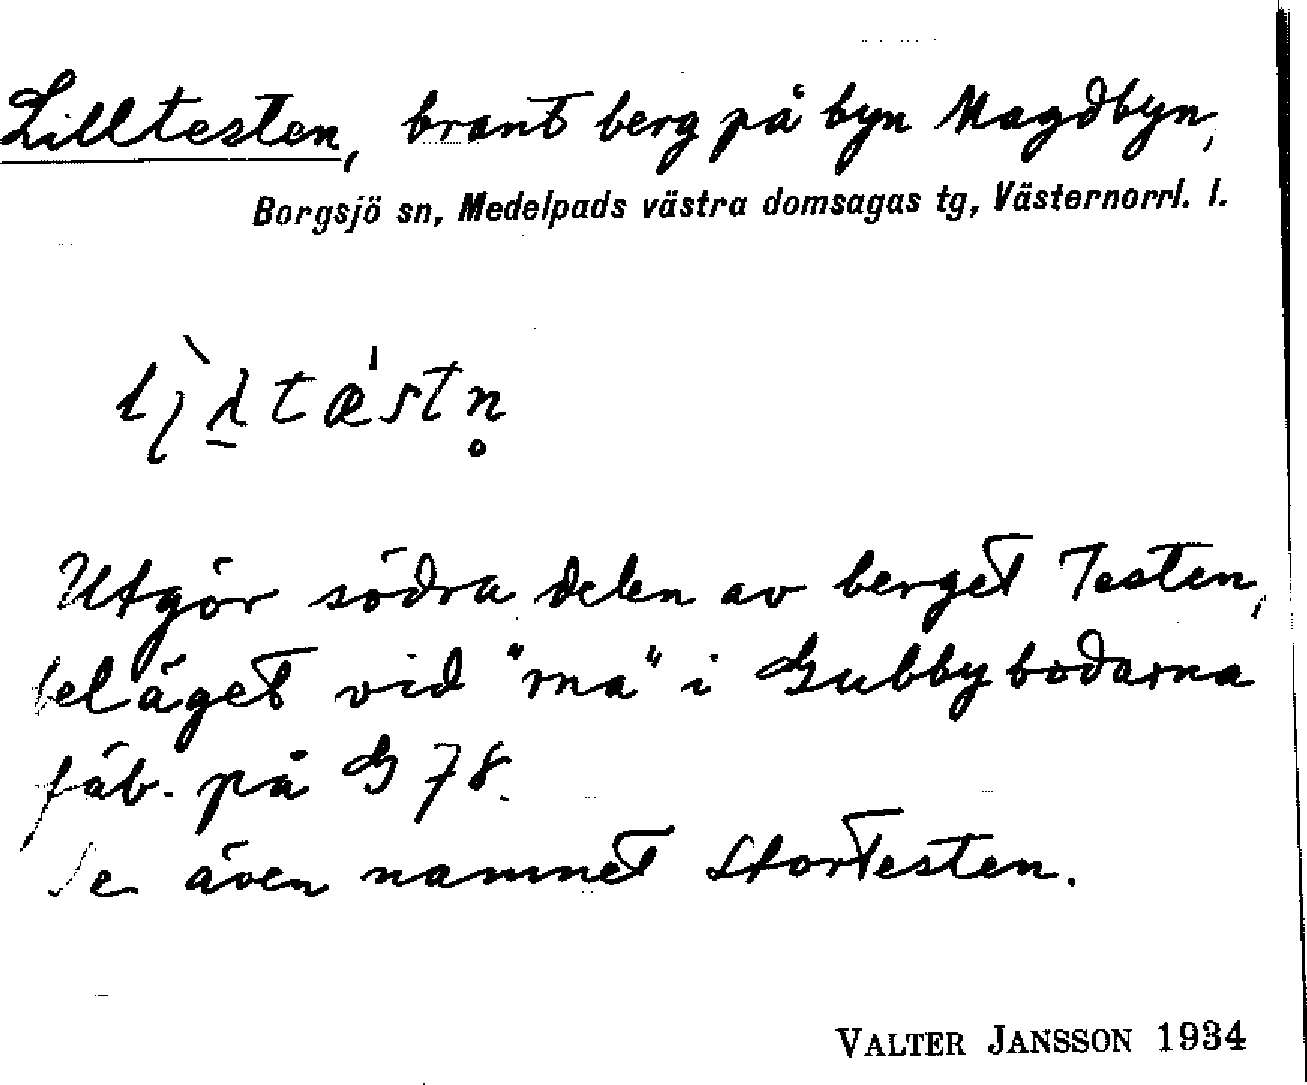 Lilltesten, brant berg på byn Magdbyn,
Borgsjö sn, Medelpads västra domsagas tg, Västernorrl. l.
Utgör södra delen av berget Testen,
beläget vid "rna" i Gubbybodarna
fäb. på G 78.
Se även namnet Stortesten.
VALTER JANSSON 1934